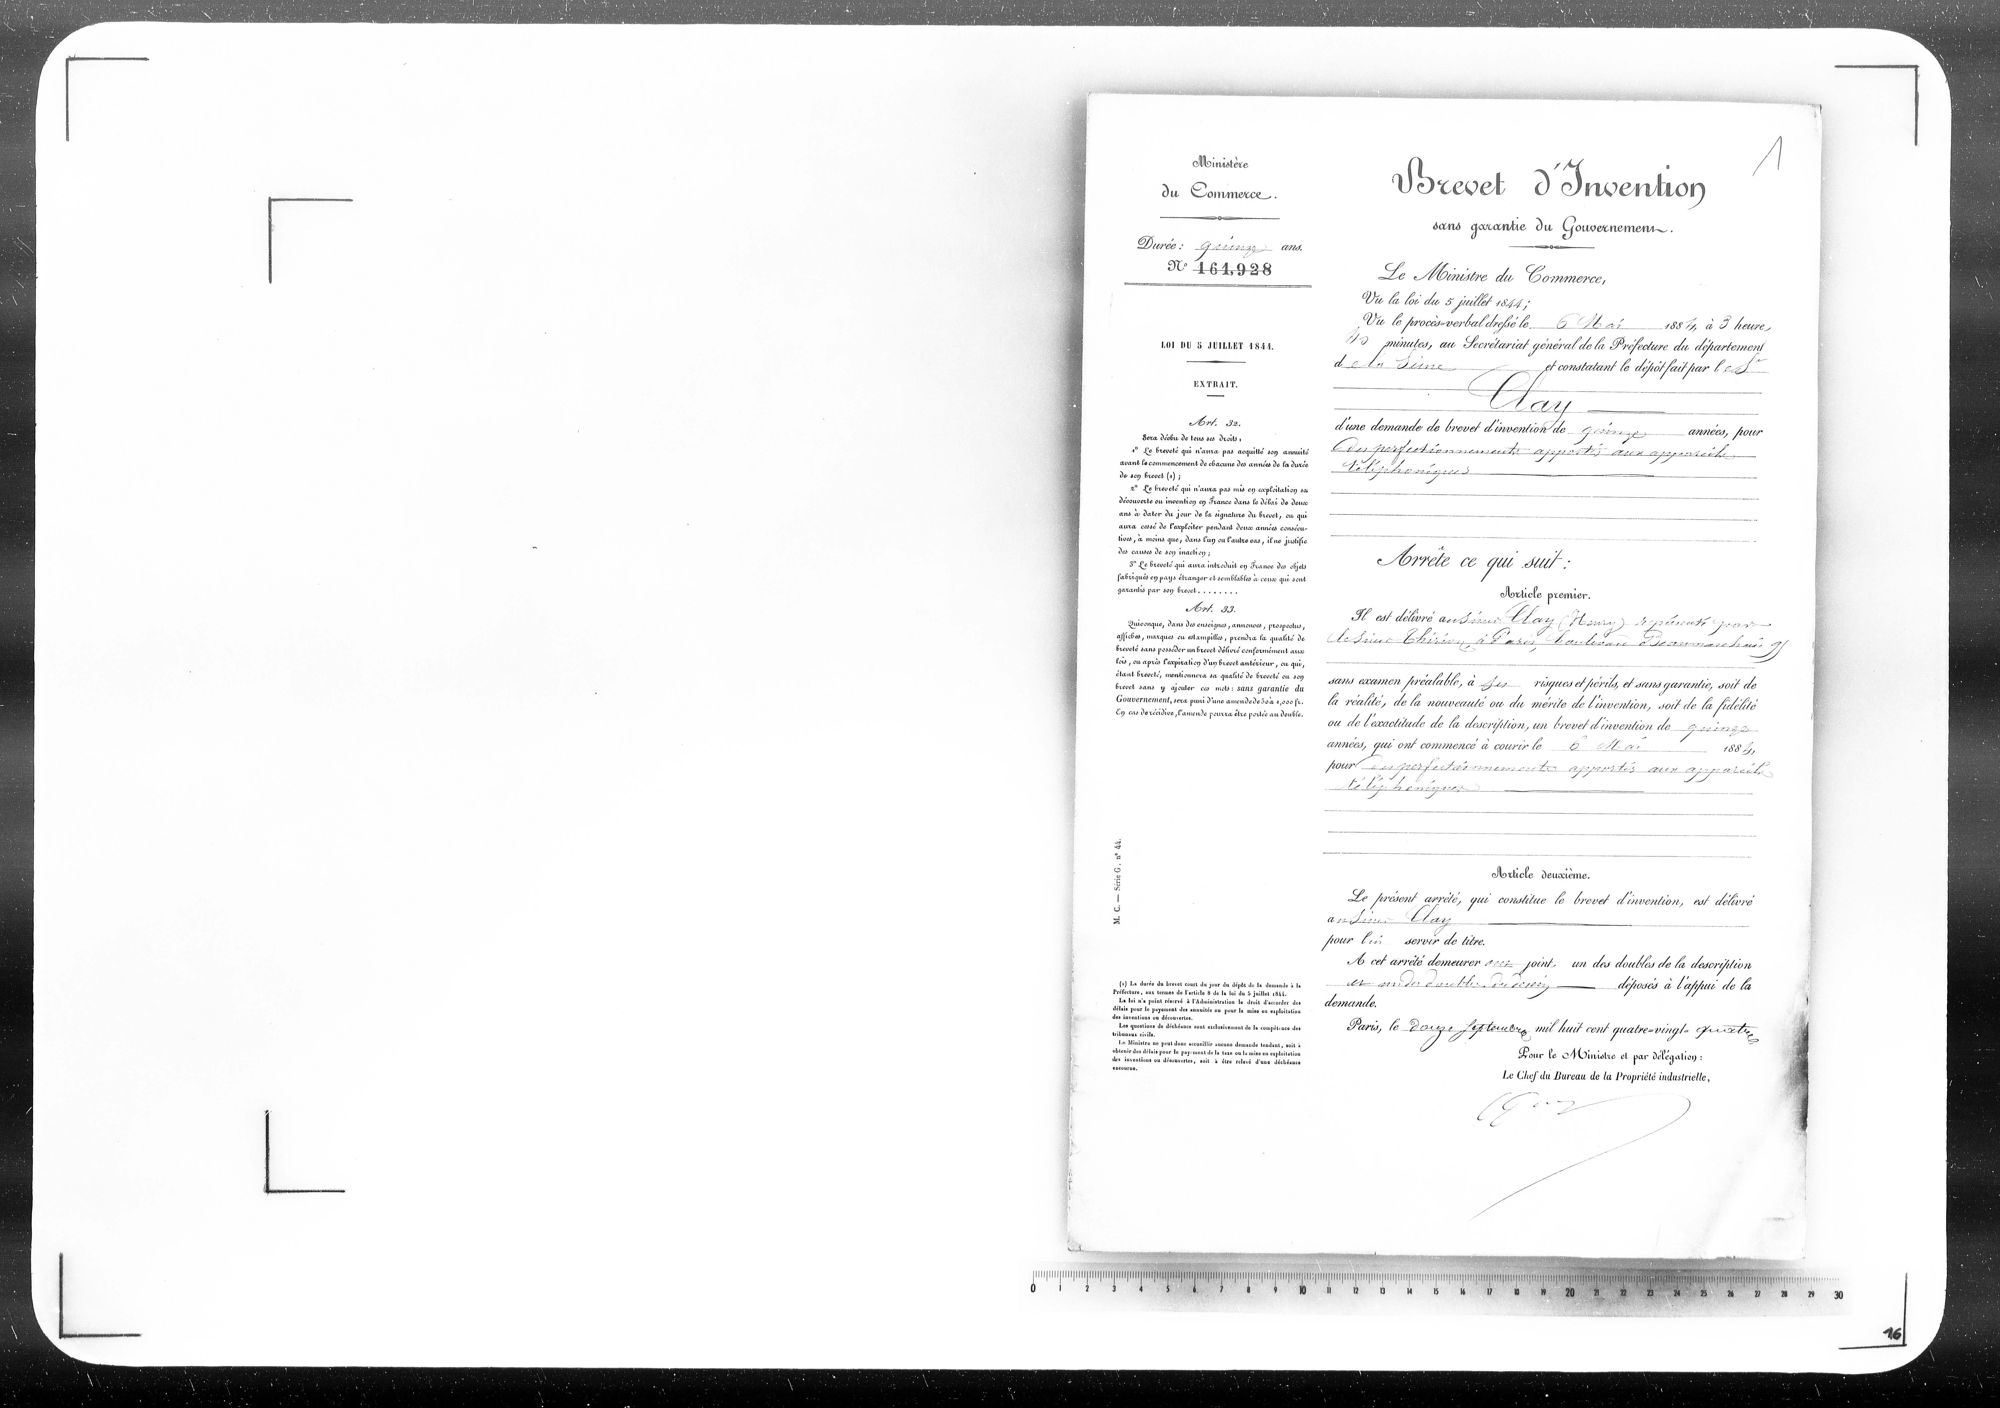 1
Ministère
du Commerce.
Durée : quinze ans.
N° 161,928
LOI DU 5 JUILLET 1844.
EXTRAIT.
Art. 32.
Sera déchu de tous ses droits :
1° Le breveté qui n'aura pas acquitté son annuité
avant le commencement de chacune des années de la durée
de son brevet (1) ;
2° Le breveté qui n'aura pas mis en exploitation sa
découverte ou invention en France dans le délai de deux
ans à dater du jour de la signature du brevet, ou qui
aura cessé de l'exploiter pendant deux années consécu-
tives, à moins que, dans l'un ou l'autre cas, il ne justifie
des causes de son inaction ;
3° Le breveté qui aura introduit en France des objets
fabriqués en pays étranger et semblables à ceux qui sont
garantis par son brevet........
Art. 33.
Quiconque, dans des enseignes, annonces, prospectus,
affiches, marques ou estampilles, prendra la qualité de
breveté sans posséder un brevet délivré conformément aux
lois, ou après l'expiration d'un brevet antérieur, ou qui,
étant breveté, mentionnera sa qualité de breveté ou son
brevet sans y ajouter ces mots : sans garantie du
Gouvernement, sera puni d'une amende de 50 à 1,000 fr.
En cas de récidive, l'amende pourra être portée au double.
M. C. — Série G. n° 44.
(1) La durée du brevet court du jour du dépôt de la demande à la
Préfecture, aux termes de l'article 8 de la loi du 5 juillet 1844.
La loi n'a point réservé à l'Administration le droit d'accorder des
délais pour le payement des annuités ou pour la mise en exploitation
des inventions ou découvertes.
Les questions de déchéance sont exclusivement de la compétence des
tribunaux civils.
Le Ministre ne peut donc accueillir aucune demande tendant, soit à
obtenir des délais pour le payement de la taxe ou la mise en exploitation
des inventions ou découvertes, soit à être relevé d'une déchéance
encourue.
Brevet d'Invention
sans garantie du Gouvernement.
Le Ministre du Commerce,
Vu la loi du 5 juillet 1844 ;
Vu le procès-verbal dressé le 6 Mai 1884, à 3 heures
40 minutes, au Secrétariat général de la Préfecture du département
de la Seine et constatant le dépôt fait par le Sr
Clay
d'une demande de brevet d'invention de quinze années, pour
des perfectionnements apportés aux appareils
téléphoniques
Arrête ce qui suit :
Article premier.
Il est délivré au Sieur Clay (Henry) représenté par
le Sieur Thirion, à Paris, boulevard Beaumarchais 95
sans examen préalable, à ses risques et périls, et sans garantie, soit de
la réalité, de la nouveauté ou du mérite de l'invention, soit de la fidélité
ou de l'exactitude de la description, un brevet d'invention de quinze
années, qui ont commencé à courir le 6 Mai 1884,
pour des perfectionnements apportés aux appareils
téléphoniques
Article deuxième.
Le présent arrêté, qui constitue le brevet d'invention, est délivré
au Sieur Clay
pour lui servir de titre.
A cet arrêté demeurera joint un des doubles de la description
et un des doubles du dessin déposés à l'appui de la
demande.
Paris, le douze septembre mil huit cent quatre-vingt-quatre
Pour le Ministre et par délégation :
Le Chef du Bureau de la Propriété industrielle,
0 1 2 3 4 5 6 7 8 9 10 11 12 13 14 15 16 17 18 19 20 21 22 23 24 25 26 27 28 29 30
16